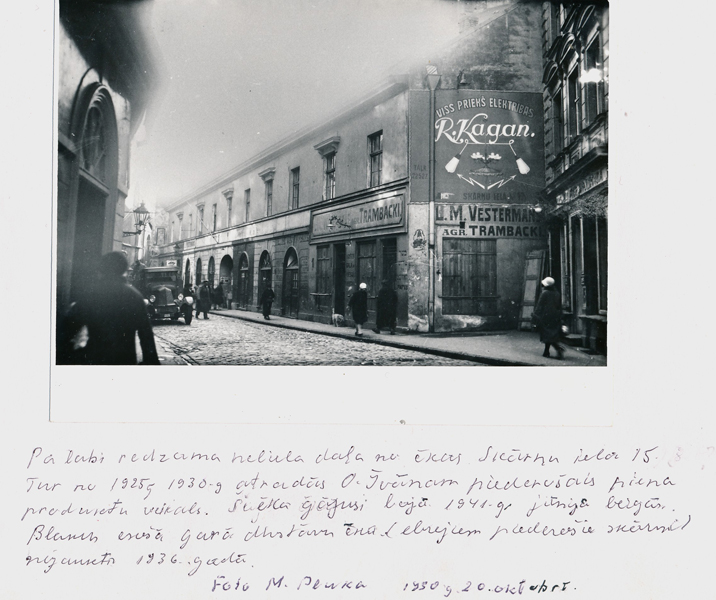 VISS PRIEKŠ ELEKTRĪBAS
R. Kagan.
SKĀRŅU IELĀ
TRAMBACKI
U. M. VESTERMAN
AGR. TRAMBACKI
Pa labi redzama neliela daļa no ēkas Skārņu ielā 15.
Tur no 1925g 1930-g atradās O. Īvānam piederošais piena
produktu veikals. gājusi bojā 1941-g. jūnija beigās.
Blakus esošā garā divstāvu ēka (ebrejiem piederošie skārņi)
nojaukta 1936. gadā.
Foto M. Penka 1930 g. 20. oktobrī.